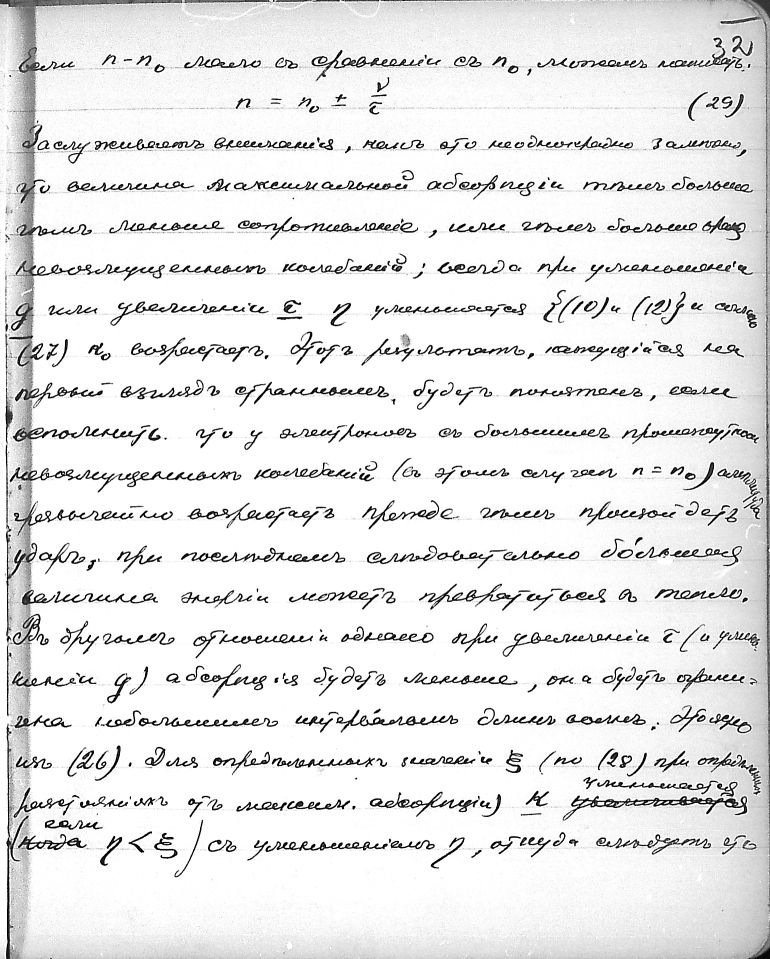 32
Если n-n₀ мало въ сравненіи съ n₀, можемъ написать:
n = n₀ ± ν/τ (29)
Заслуживаетъ вниманія, какъ это неоднократно замѣчено,
что величина максимальной абсорпціи тѣмъ больше
чѣмъ меньше сопротивленіе, или чѣмъ больше время
невозмущенныхъ колебаній; всегда при уменьшеніи
g или увеличеніи τ η уменьшается {(10) и (12)} и согласно
(27) κ₀ возрастаетъ. Этотъ результатъ, кажущійся на
первый взглядъ страннымъ, будетъ понятенъ, если
вспомнить что у электроновъ съ большимъ промежуткомъ
невозмущенныхъ колебаній (въ этомъ случаѣ n=n₀) амплитуда
чрезвычайно возрастаетъ прежде чѣмъ произойдетъ
ударъ; при послѣднемъ слѣдовательно бо́льшая
величина энергіи можетъ превратиться в тепло.
Въ другомъ отношеніи однако при увеличеніи τ (и умень-
шеніи g) абсорпція будетъ меньше, она будетъ ограни-
чена небольшимъ интерваломъ длинъ волнъ. Это ясно
изъ (26). Для опредѣленныхъ значеніи ξ (по (28) при опредѣленныхъ
разстояніяхъ отъ максим. абсорпціи) κ уменьшается увеличивается
(когда если η < ξ) съ уменьшеніемъ η, откуда слѣдуетъ что